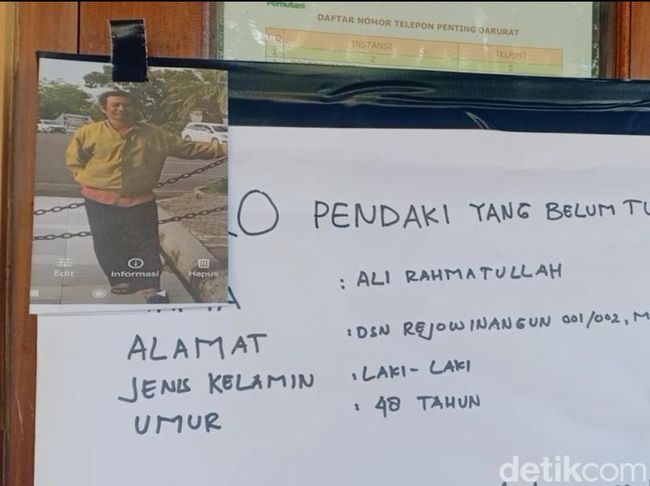 Perhutani
DAFTAR NOMOR TELEPON PENTING DARURAT
INSTANSI TELP/HT
1 2 5
Edit Informasi Hapus
O PENDAKI YANG BELUM TU
: ALI RAHMATULLAH
ALAMAT : DSN REJOWINANGUN 001/002, M
JENIS KELAMIN : LAKI-LAKI
UMUR : 48 TAHUN
detikcom